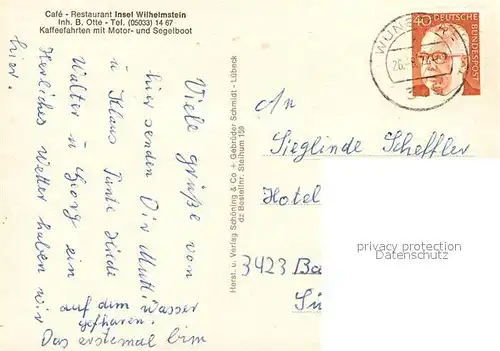 Café - Restaurant Insel Wilhelmstein
Inh. B. Otte - Tel. (05033) 14 67
Kaffeefahrten mit Motor- und Segelboot
Viele grüße von
hier senden Dir Mutti
u Klaus Tante Hilde
Walter u Georg ein
Herrliches Wetter haben wir
hier.
Das erstemal bim
auf dem Wasser
gefharen.
Herst. u. Verlag Schöning & Co + Gebrüder Schmidt - Lübeck
dz Bestellnr. Steihum 159
WUNSTORF
40 DEUTSCHE BUNDESPOST
An
Sieglinde Scheffler
Hotel
3423 Ba
privacy protection
Datenschutz